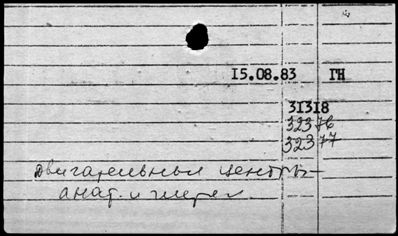 15.08.83 ГН
31318
32376
32377
двигательные центры –
анат. и